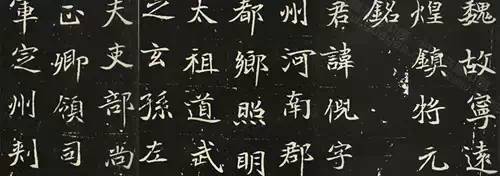 魏故寧遠
煌鎮將元
銘
君諱倪字
州河南郡
都鄉照明
太祖道武
之玄孫左
夫吏部尚
正卿領司
軍定州刾